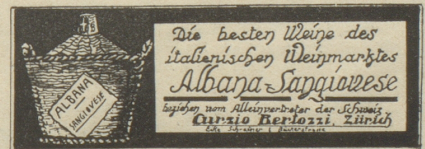 ALBANA
SANGIOVESE
Die besten Weine des
italienischen Weinmarktes
Albana-Sangiovese
beziehen vom Alleinvertreter der Schweiz
Curzio Bertozzi, Zürich
Ecke